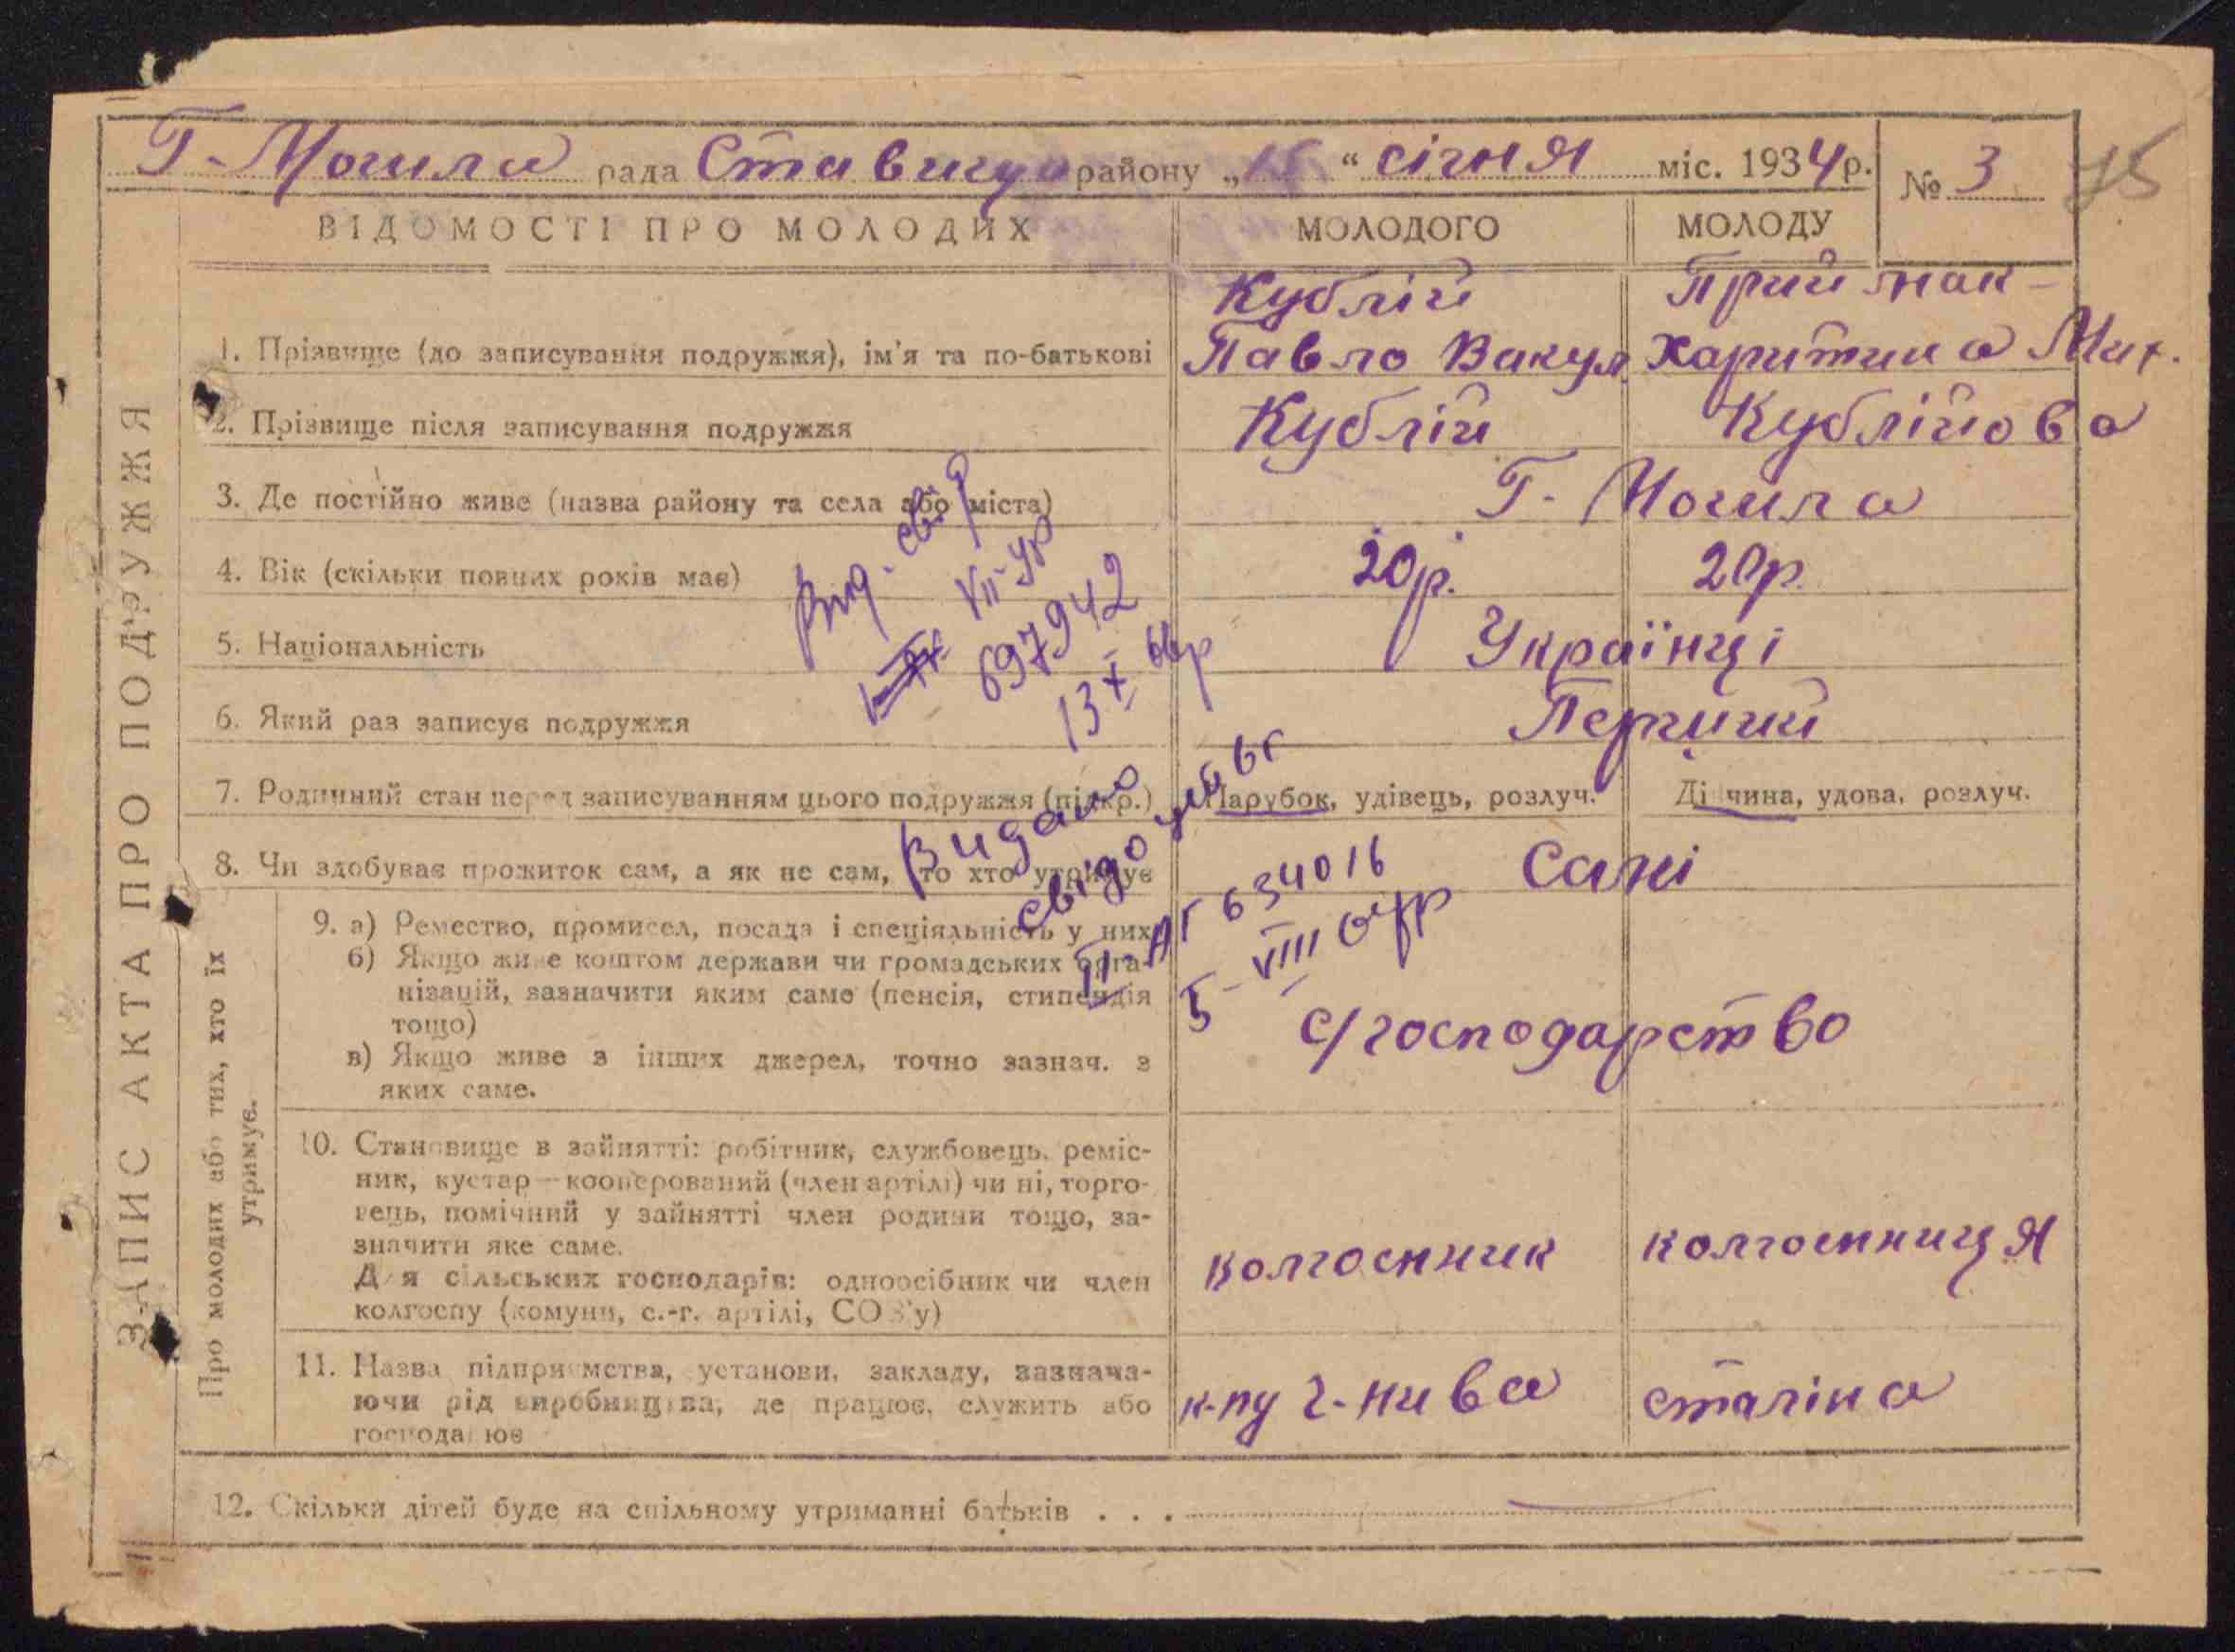 Г-Могила рада Ставищ району „15“ січня міс. 1934р. № 3 75
ВІДОМОСТІ ПРО МОЛОДИХ МОЛОДОГО МОЛОДУ
Кублій Приймак-
1. Прізвище (до записування подружжя), ім'я та по-батькові Павло Вакул. Харитина Мих.
2. Прізвище після записування подружжя Кублій Кублійова
3. Де постійно живе (назва району та села або міста) Г-Могила
4. Вік (скільки повних років має) 20р. 20р.
5. Національність Українці
6. Який раз записує подружжя Перший
7. Родинний стан перед записуванням цього подружжя (підкр.) Парубок, удівець, розлуч. Дівчина, удова, розлуч.
8. Чи здобуває прожиток сам, а як не сам, то хто утримує Самі
9. а) Ремество, промисел, посада і спеціяльність у них
б) Якщо живе коштом держави чи громадських орга-
нізацій, зазначити яким саме (пенсія, стипендія
тощо) с/господарство
в) Якщо живе з інших джерел, точно зазнач. з
яких саме.
10. Становище в зайнятті: робітник, службовець, реміс-
ник, кустар—кооперований (член артілі) чи ні, торго-
вець, помічний у зайнятті член родини тощо, за-
значити яке саме. колгоспник колгоспниця
Для сільських господарів: одноосібник чи член
колгоспу (комуни, с.-г. артілі, СОЗ'у)
11. Назва підприємства, установи, закладу, зазнача-
ючи рід виробництва, де працює, служить або к-пу Ч-нива сталіна
господарює
12. Скільки дітей буде на спільному утриманні батьків . . .
ЗАПИС АКТА ПРО ПОДРУЖЖЯ
Про молодих або тих, хто їх
утримує.
Вид. свід
VII-УР
697942
13 X 66р
Видано
свідо
II-АГ 634016
5-VIII